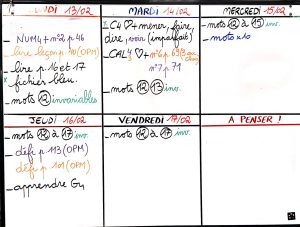 LUNDI 13/02
_ NUM4 + n°2 p.46
_ lire leçon p.40 (OPM)
_ lire p.16 et 17
x fichier bleu.
_ mots 12 invariables
MARDI 14/02
x C4 ♡ + mener, faire,
dire, voir (imparfait)
_ CAL ♡ + n°6 p.69
n°7 p.71
_ mots 12 13 inv.
MERCREDI 15/02
_ mots 12 à 15 inv.
_ mots x10
JEUDI 16/02
_ mots 12 à 17 inv.
_ défi p.113 (OPM)
_ défi p.101 (OPM)
_ apprendre G4
VENDREDI 17/02
_ mots 12 à 17 inv.
A PENSER !